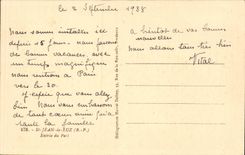 Le 2 Septembre 1938
Nous sommes installés ici
depuis 15 jours. Nous faisons
de bonnes vacances, avec
un temps magnifique
Nous rentrons à Paris
vers le 20.
J'espère que vous allez
bien. Nous vous embrassons
de tout cœur ainsi que
toute la famille.
à bientôt de vos bonnes
nouvelles
Nous allons très bien
Vital
ST-JEAN-de-LUZ (B.-P.)
Entrée du Port